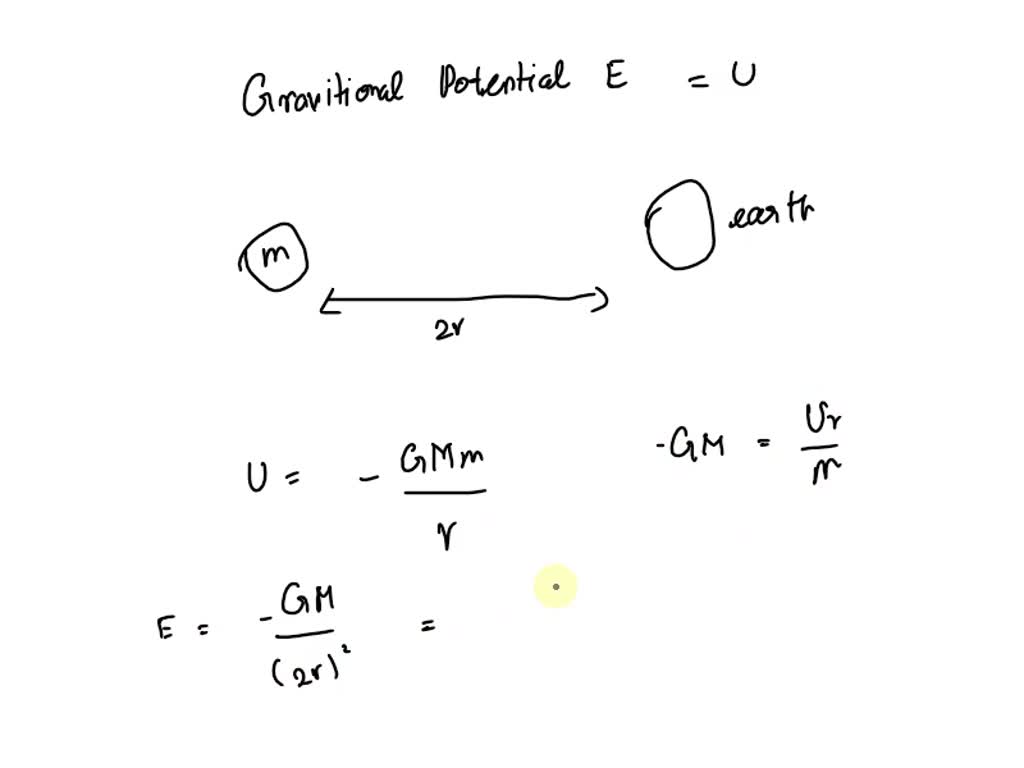 Gravitional Potential E = U
m
earth
2r
U = - GMm / r
-GM = Ur / m
E = -GM / (2r)² =